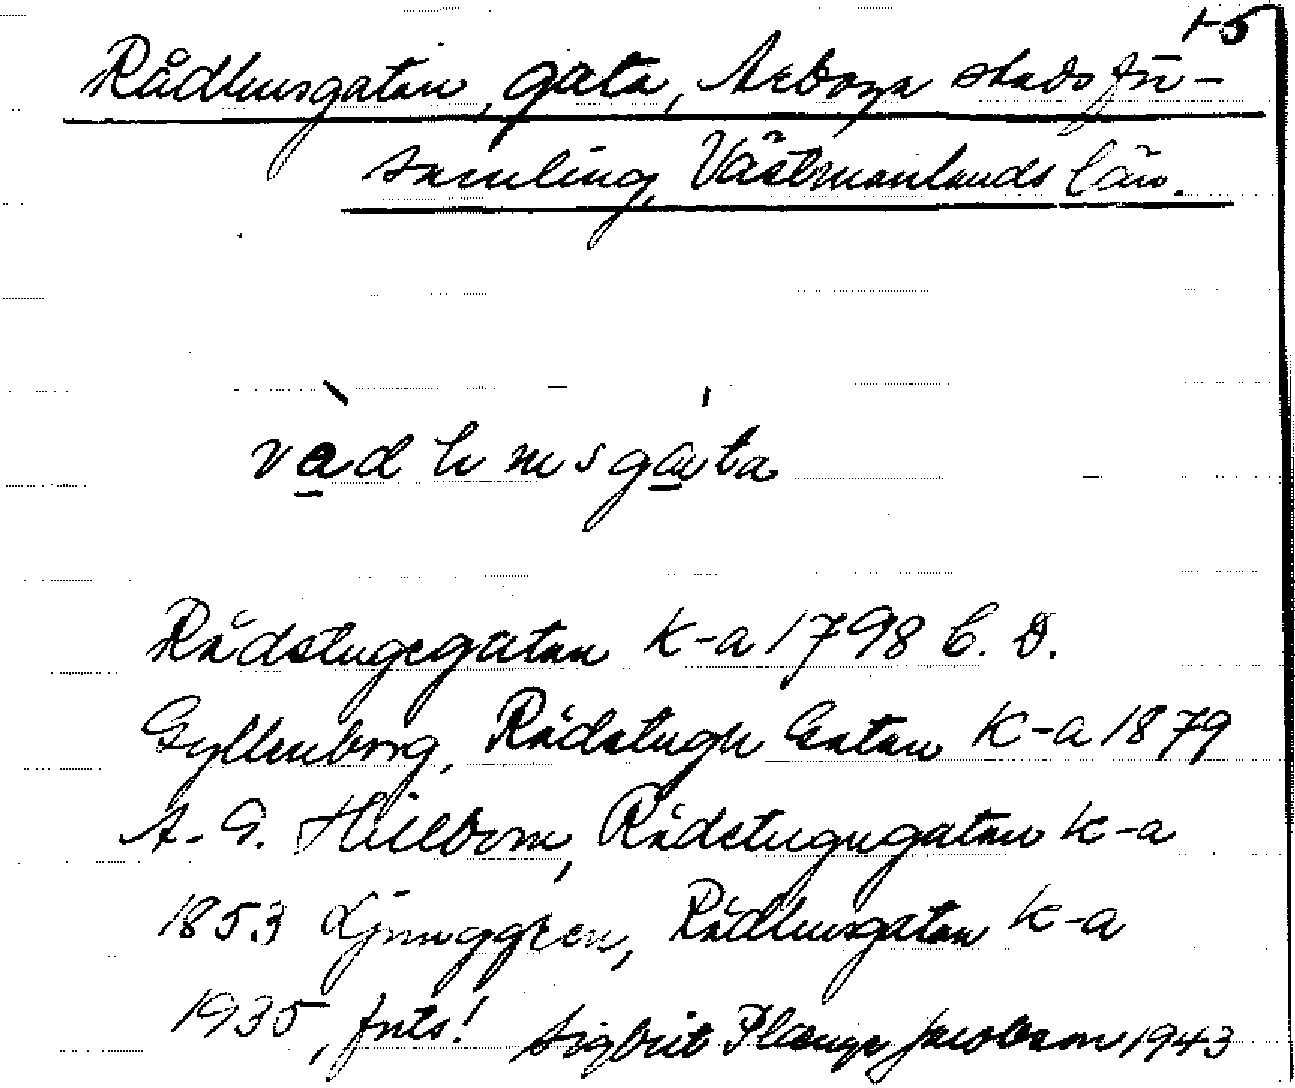 15
Rådhusgatan, gata, Arboga stadsför-
samling, Västmanlands län.
rådhusgata
Rådstugegatan K-a 1798 C. D.
Gyllenborg, Rådstugu Gatan K-a 1879
A. G. Hillbom, Rådstugugatan K-a
1853 Ljunggren, Rådhusgatan K-a
1935, forts! Sigbrit Plænge Jacobson 1943